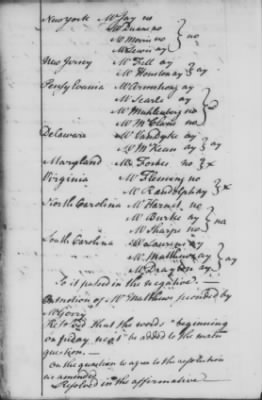 New York Mr Jay no
Mr Duane no
Mr Morris no } no
Mr Lewis ay
New Jersey Mr Fell ay
Mr Houston ay } ay
Pensylvania Mr Armstrong ay
Mr Searle ay
Mr Muhlenberg no
Mr McClene no
Delaware Mr Vandyke ay
Mr McKean ay } ay
Maryland Mr Forbes no } x
Virginia Mr Fleming no
Mr Randolph ay } x
North Carolina Mr Harnet no
Mr Burke ay } no
Mr Sharpe no
South Carolina Mr Laurens ay
Mr Matthews ay } ay
Mr Drayton ay
So it passed in the negative.
On motion of Mr Matthews seconded by
Mr Gerry
Resolved That the words "beginning
on friday next" be added to the main
question. —
On the question to agree to the resolution
as amended
Resolved in the affirmative —